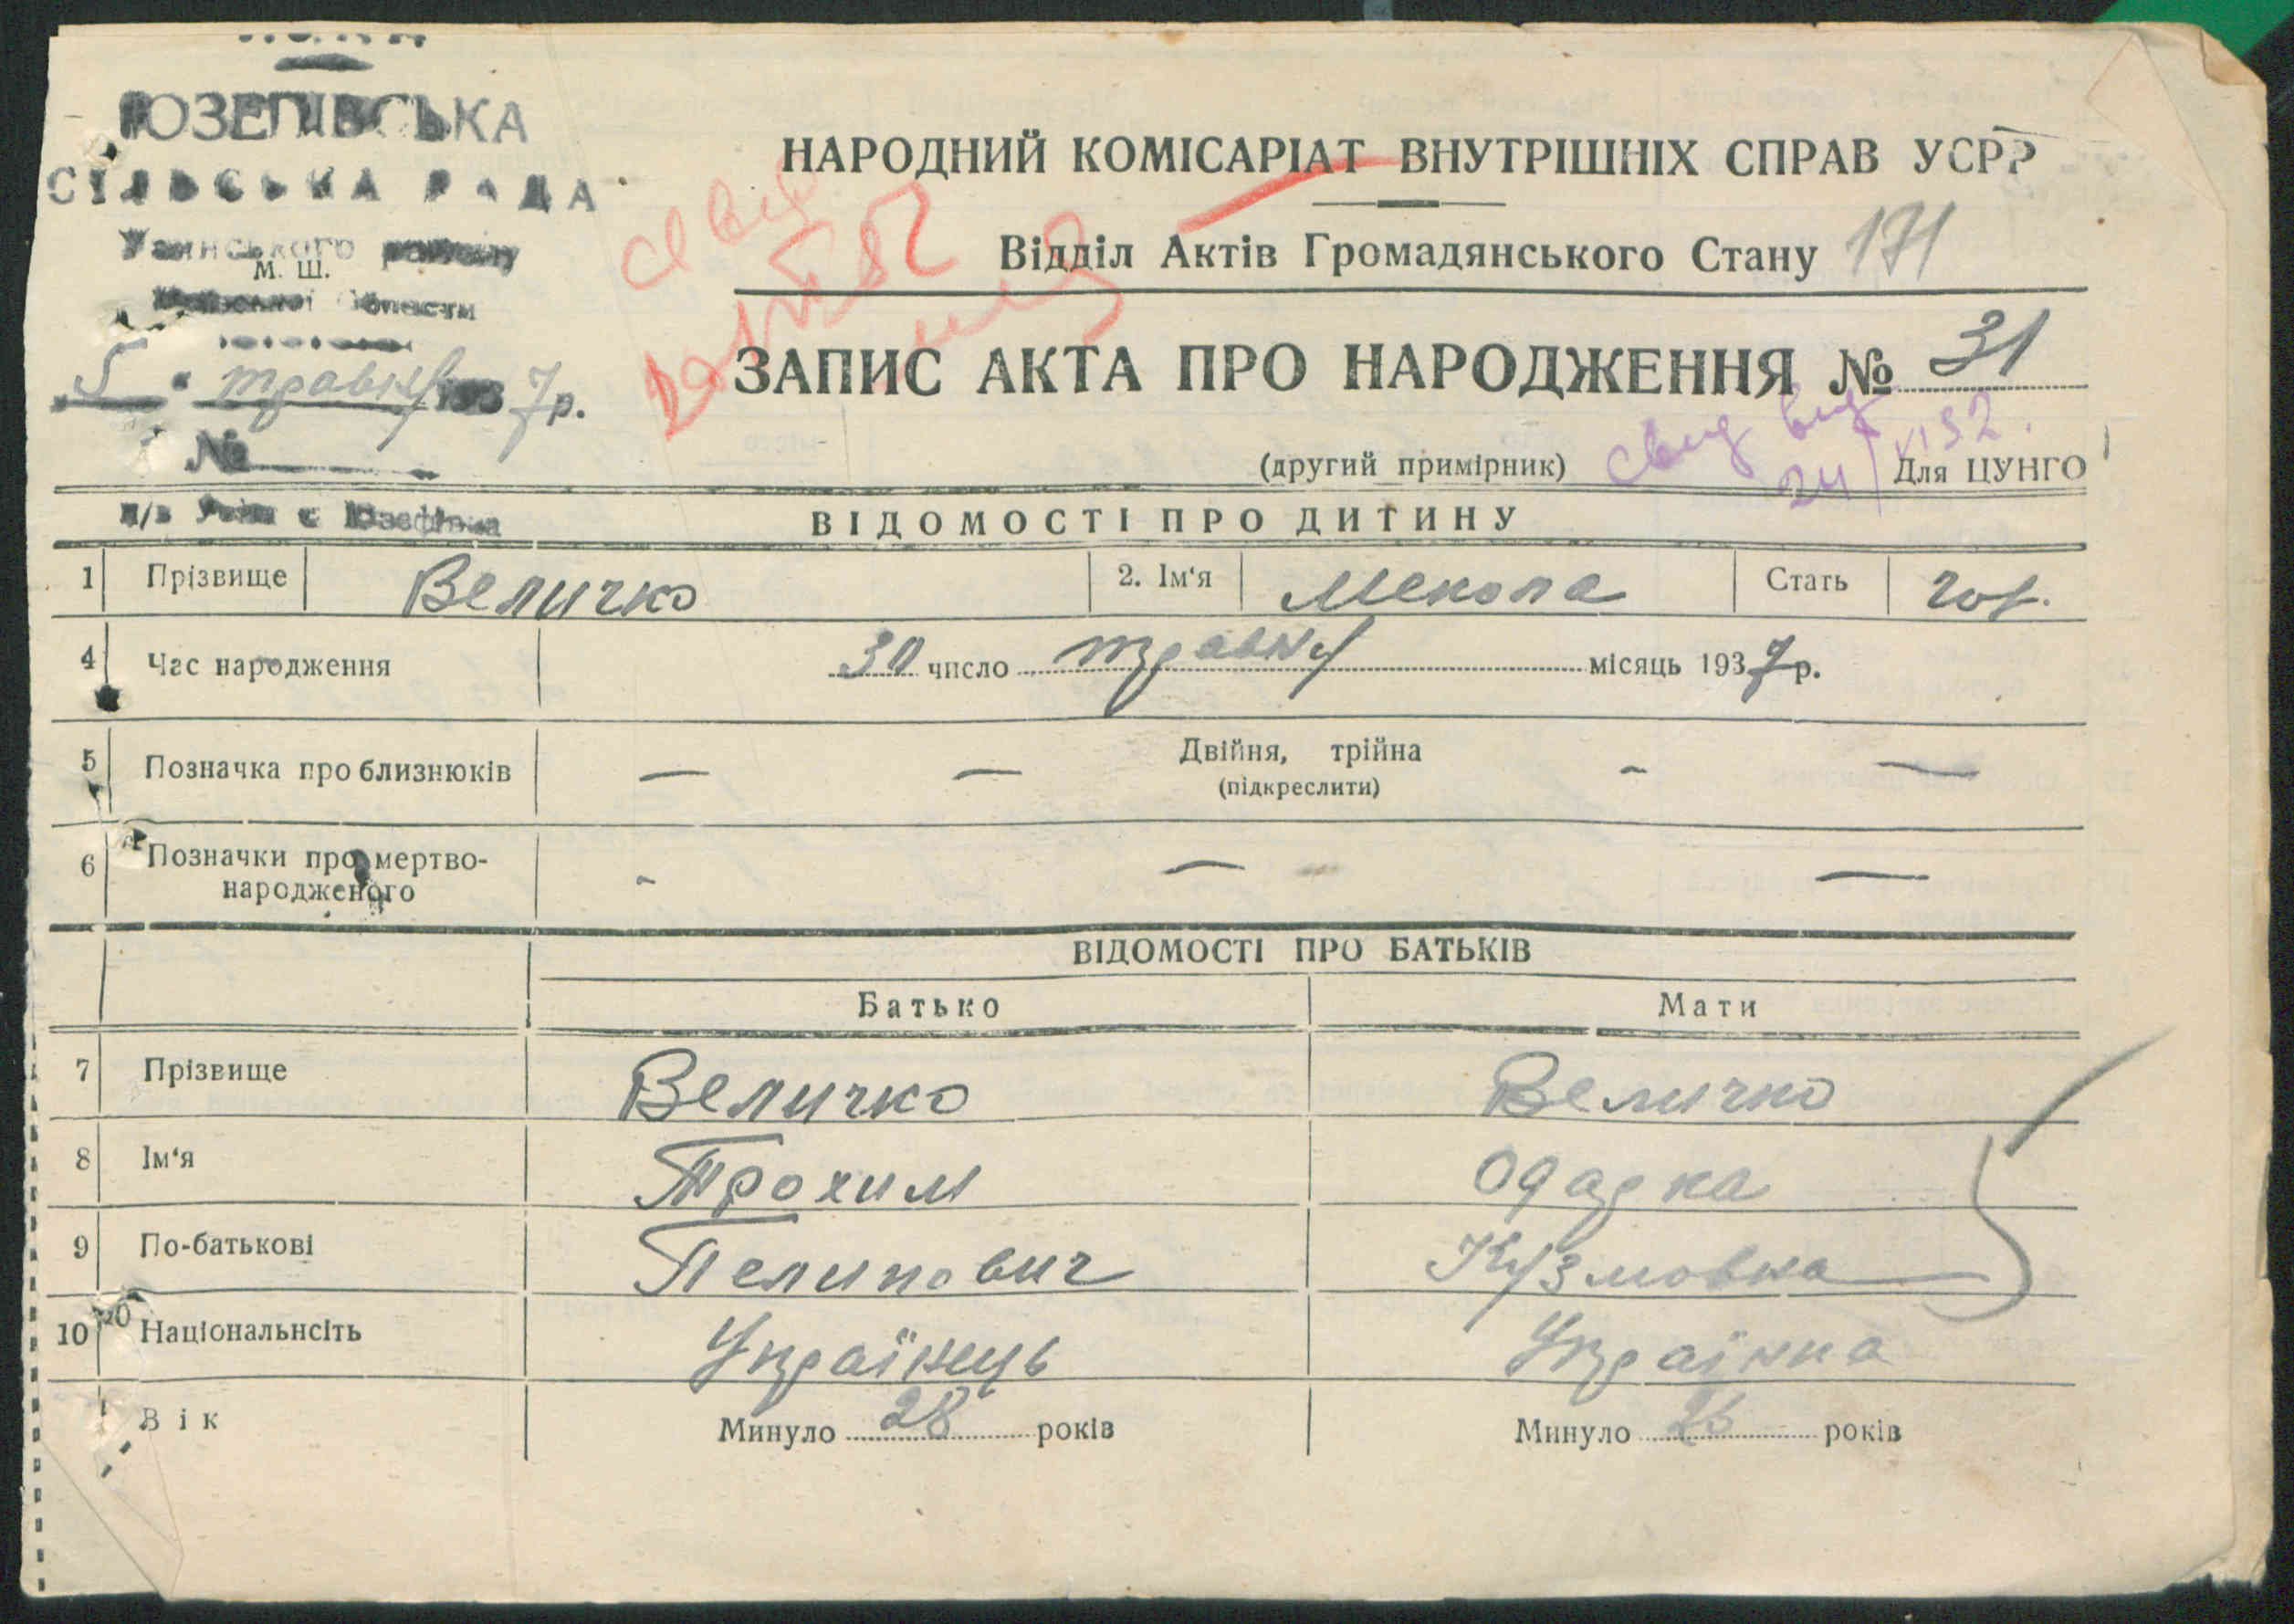 ЮЗЕПІВСЬКА
СІЛЬСЬКА РАДА
Узинського району
М. Ш.
Київської Області
5 травня 1937 р.
№
п/в Узін с Юзефівка
НАРОДНИЙ КОМІСАРІАТ ВНУТРІШНІХ СПРАВ УСРР
Відділ Актів Громадянського Стану 171
ЗАПИС АКТА ПРО НАРОДЖЕННЯ № 31
(другий примірник) Для ЦУНГО
свид выд
24/VI 52.
ВІДОМОСТІ ПРО ДИТИНУ
1 Прізвище Величко 2. Ім'я Мекола Стать чол.
4 Час народження 30 число травня місяць 1937 р.
5 Позначка про близнюків — — Двійня, трійна - —
(підкреслити)
6 Позначки про мертво-
народженого - — —
ВІДОМОСТІ ПРО БАТЬКІВ
Батько Мати
7 Прізвище Величко Величко
8 Ім'я Трохим Одарка
9 По-батькові Пелипович Кузмовна
10 Національнсіть Українець Українка
Вік Минуло 28 років Минуло 26 років